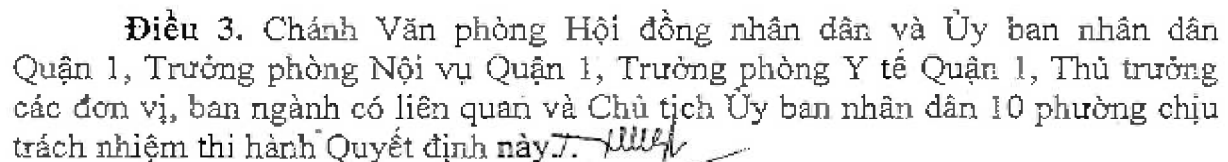 Điều 3. Chánh Văn phòng Hội đồng nhân dân và Ủy ban nhân dân
Quận 1, Trưởng phòng Nội vụ Quận 1, Trưởng phòng Y tế Quận 1, Thủ trưởng
các đơn vị, ban ngành có liên quan và Chủ tịch Ủy ban nhân dân 10 phường chịu
trách nhiệm thi hành Quyết định này./.